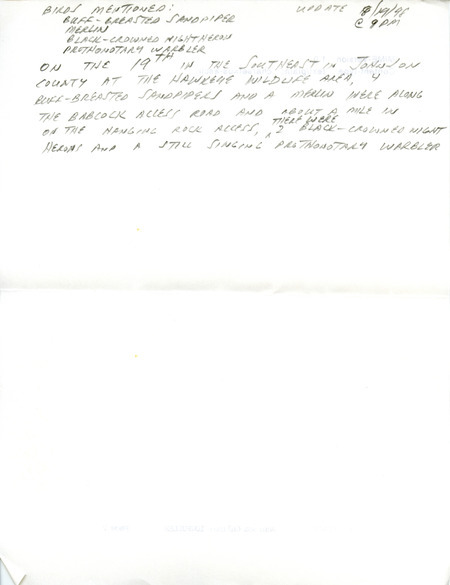 BIRDS MENTIONED: UPDATE 8/19/98
BUFF-BREASTED SANDPIPER @ 9 PM
MERLIN
BLACK-CROWNED NIGHT HERON
PROTHONOTARY WARBLER
ON THE 19TH IN THE SOUTHEAST IN JOHNSON
COUNTY AT THE HAWKEYE WILDLIFE AREA, 4
BUFF-BREASTED SANDPIPERS AND A MERLIN WERE ALONG
THE BABCOCK ACCESS ROAD AND ABOUT A MILE IN
THERE WERE
ON THE HANGING ROCK ACCESS, ^ 2 BLACK-CROWNED NIGHT
HERONS AND A STILL SINGING PROTHONOTARY WARBLER